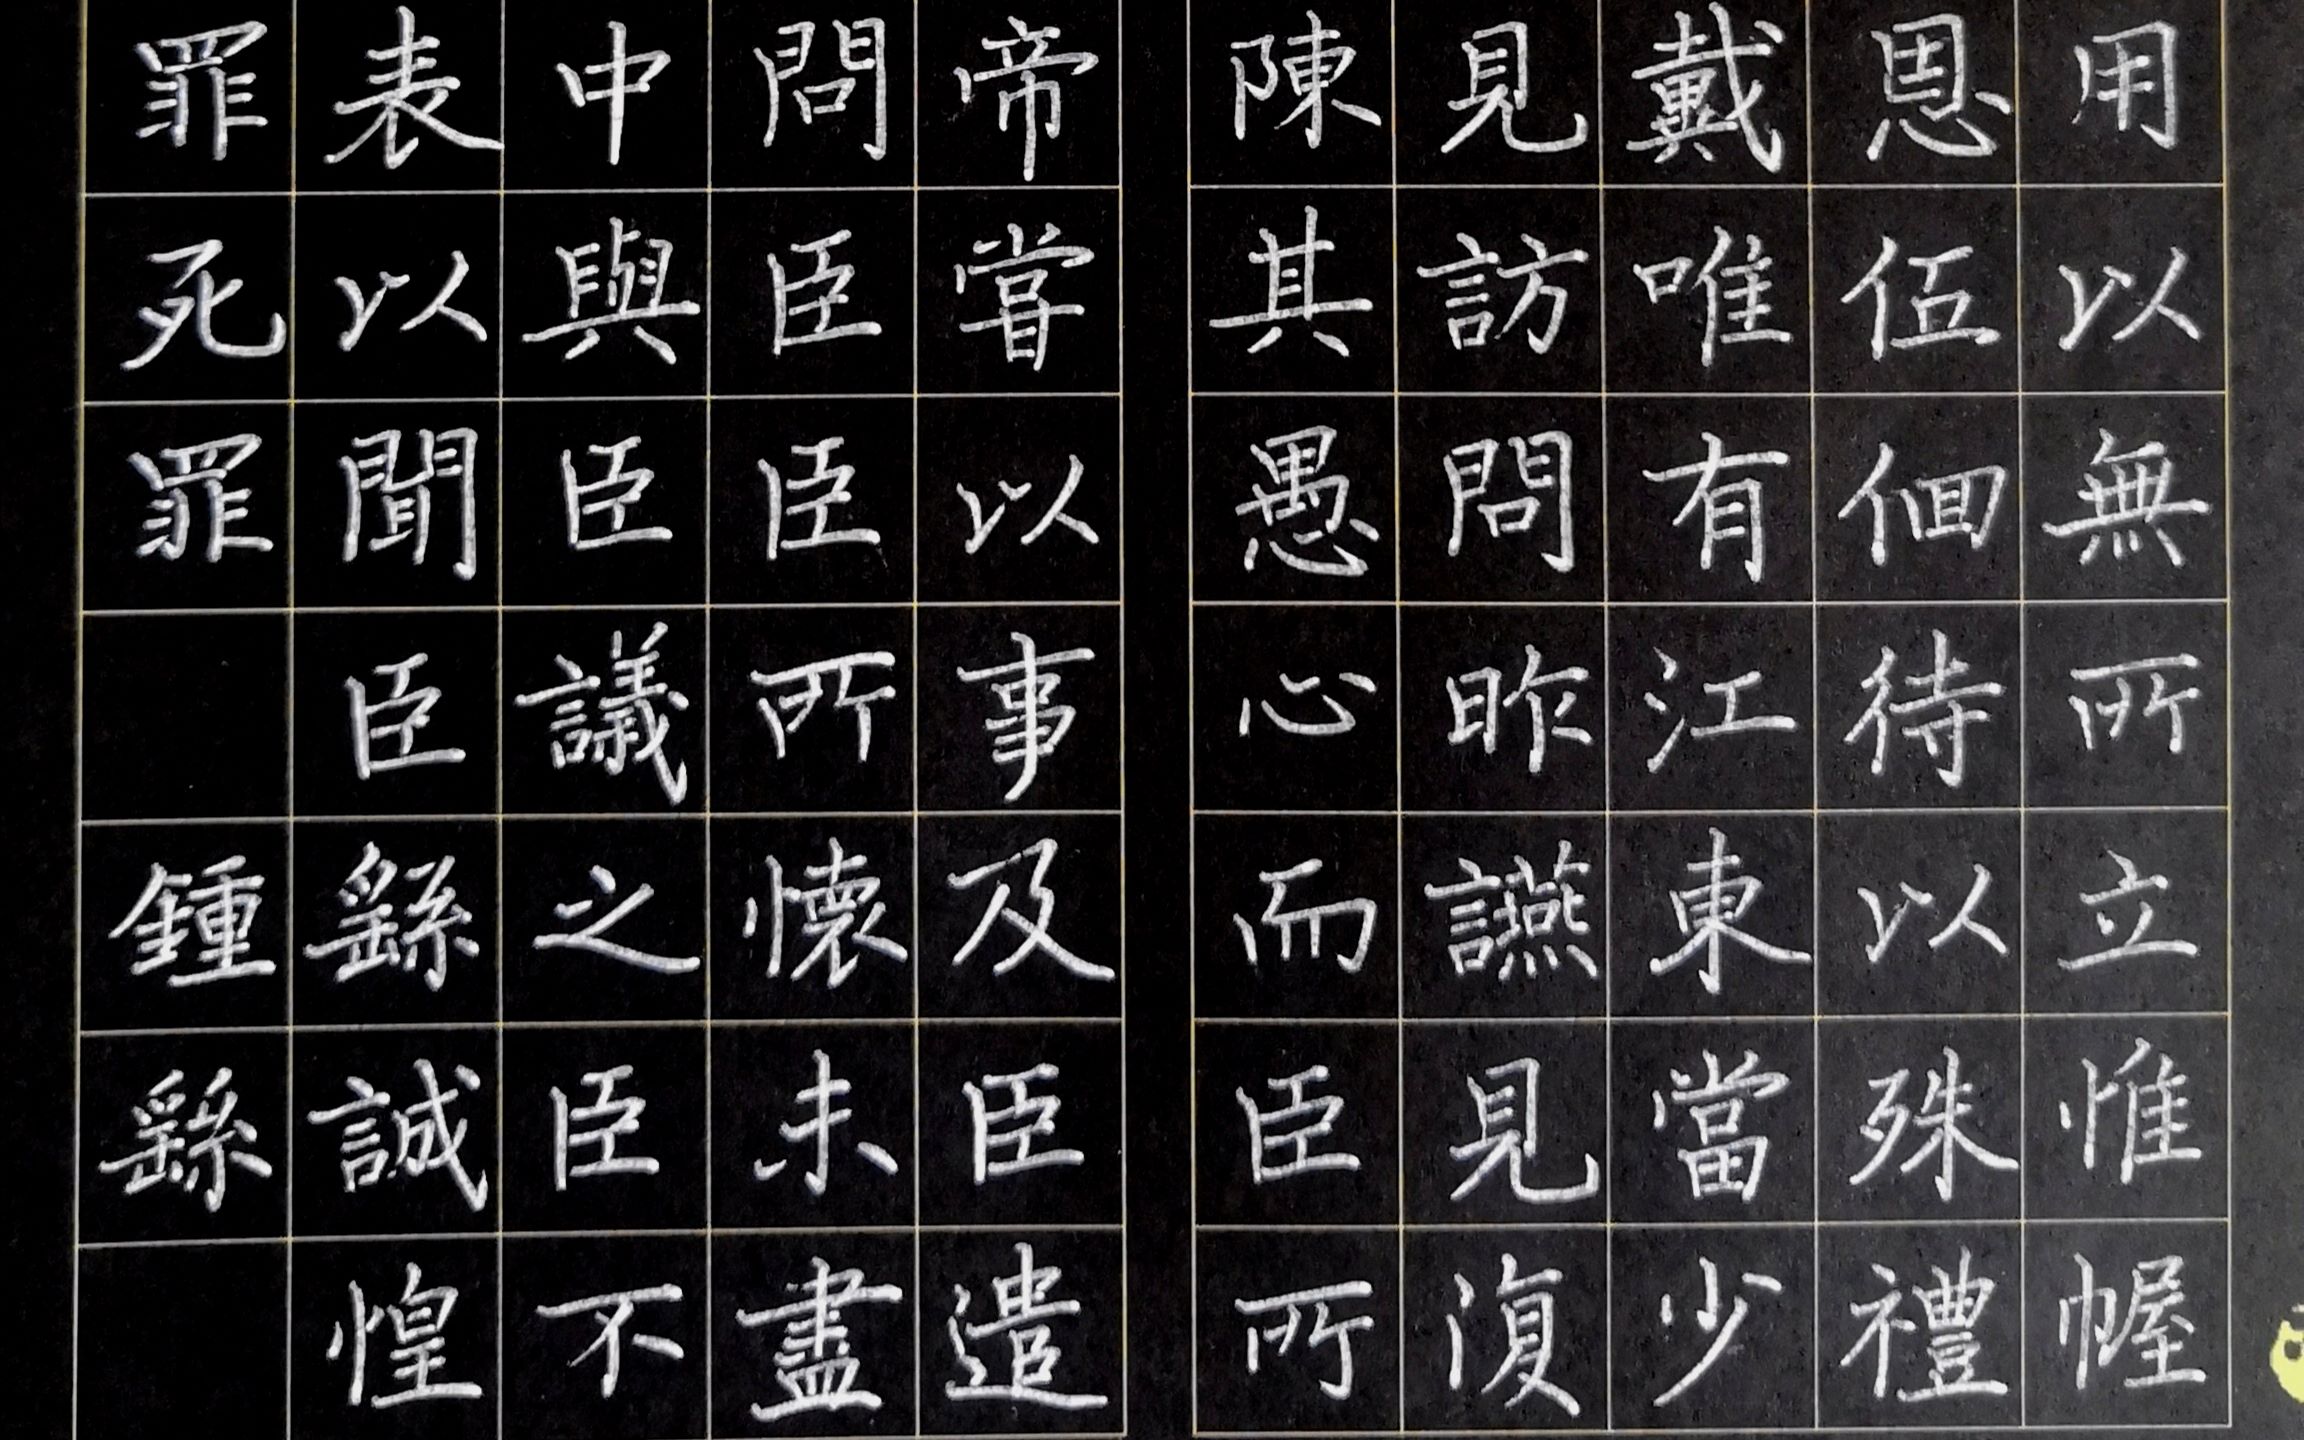 用以無所立惟幄
恩低佪待以殊禮
戴唯有江東當少
見訪問昨讌見復
陳其愚心而臣所
帝嘗以事及臣遣
問臣臣所懷未盡
中與臣議之臣不
表以聞臣繇誠惶
罪死罪 鍾繇